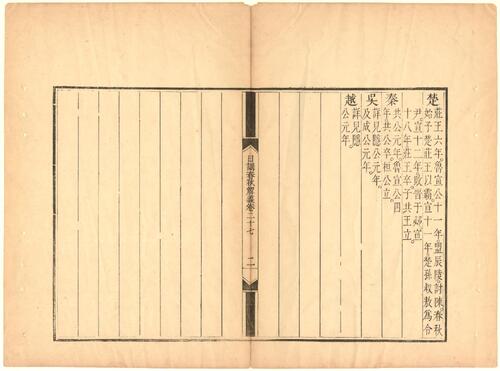 楚
莊王六年。魯宣公十一年盟辰陵。討陳。春秋
始予楚莊王以霸。宣十一年。楚孫叔敖為令
尹。宣十二年。敗晉于邲。宣
十八年。莊王卒。子共王立。
秦
共公元年。魯宣公四
年。共公卒。桓公立。
吳
詳見隱公元年。
及成公元年。
越
詳見隱
公元年。
日講春秋解義卷二十七
二